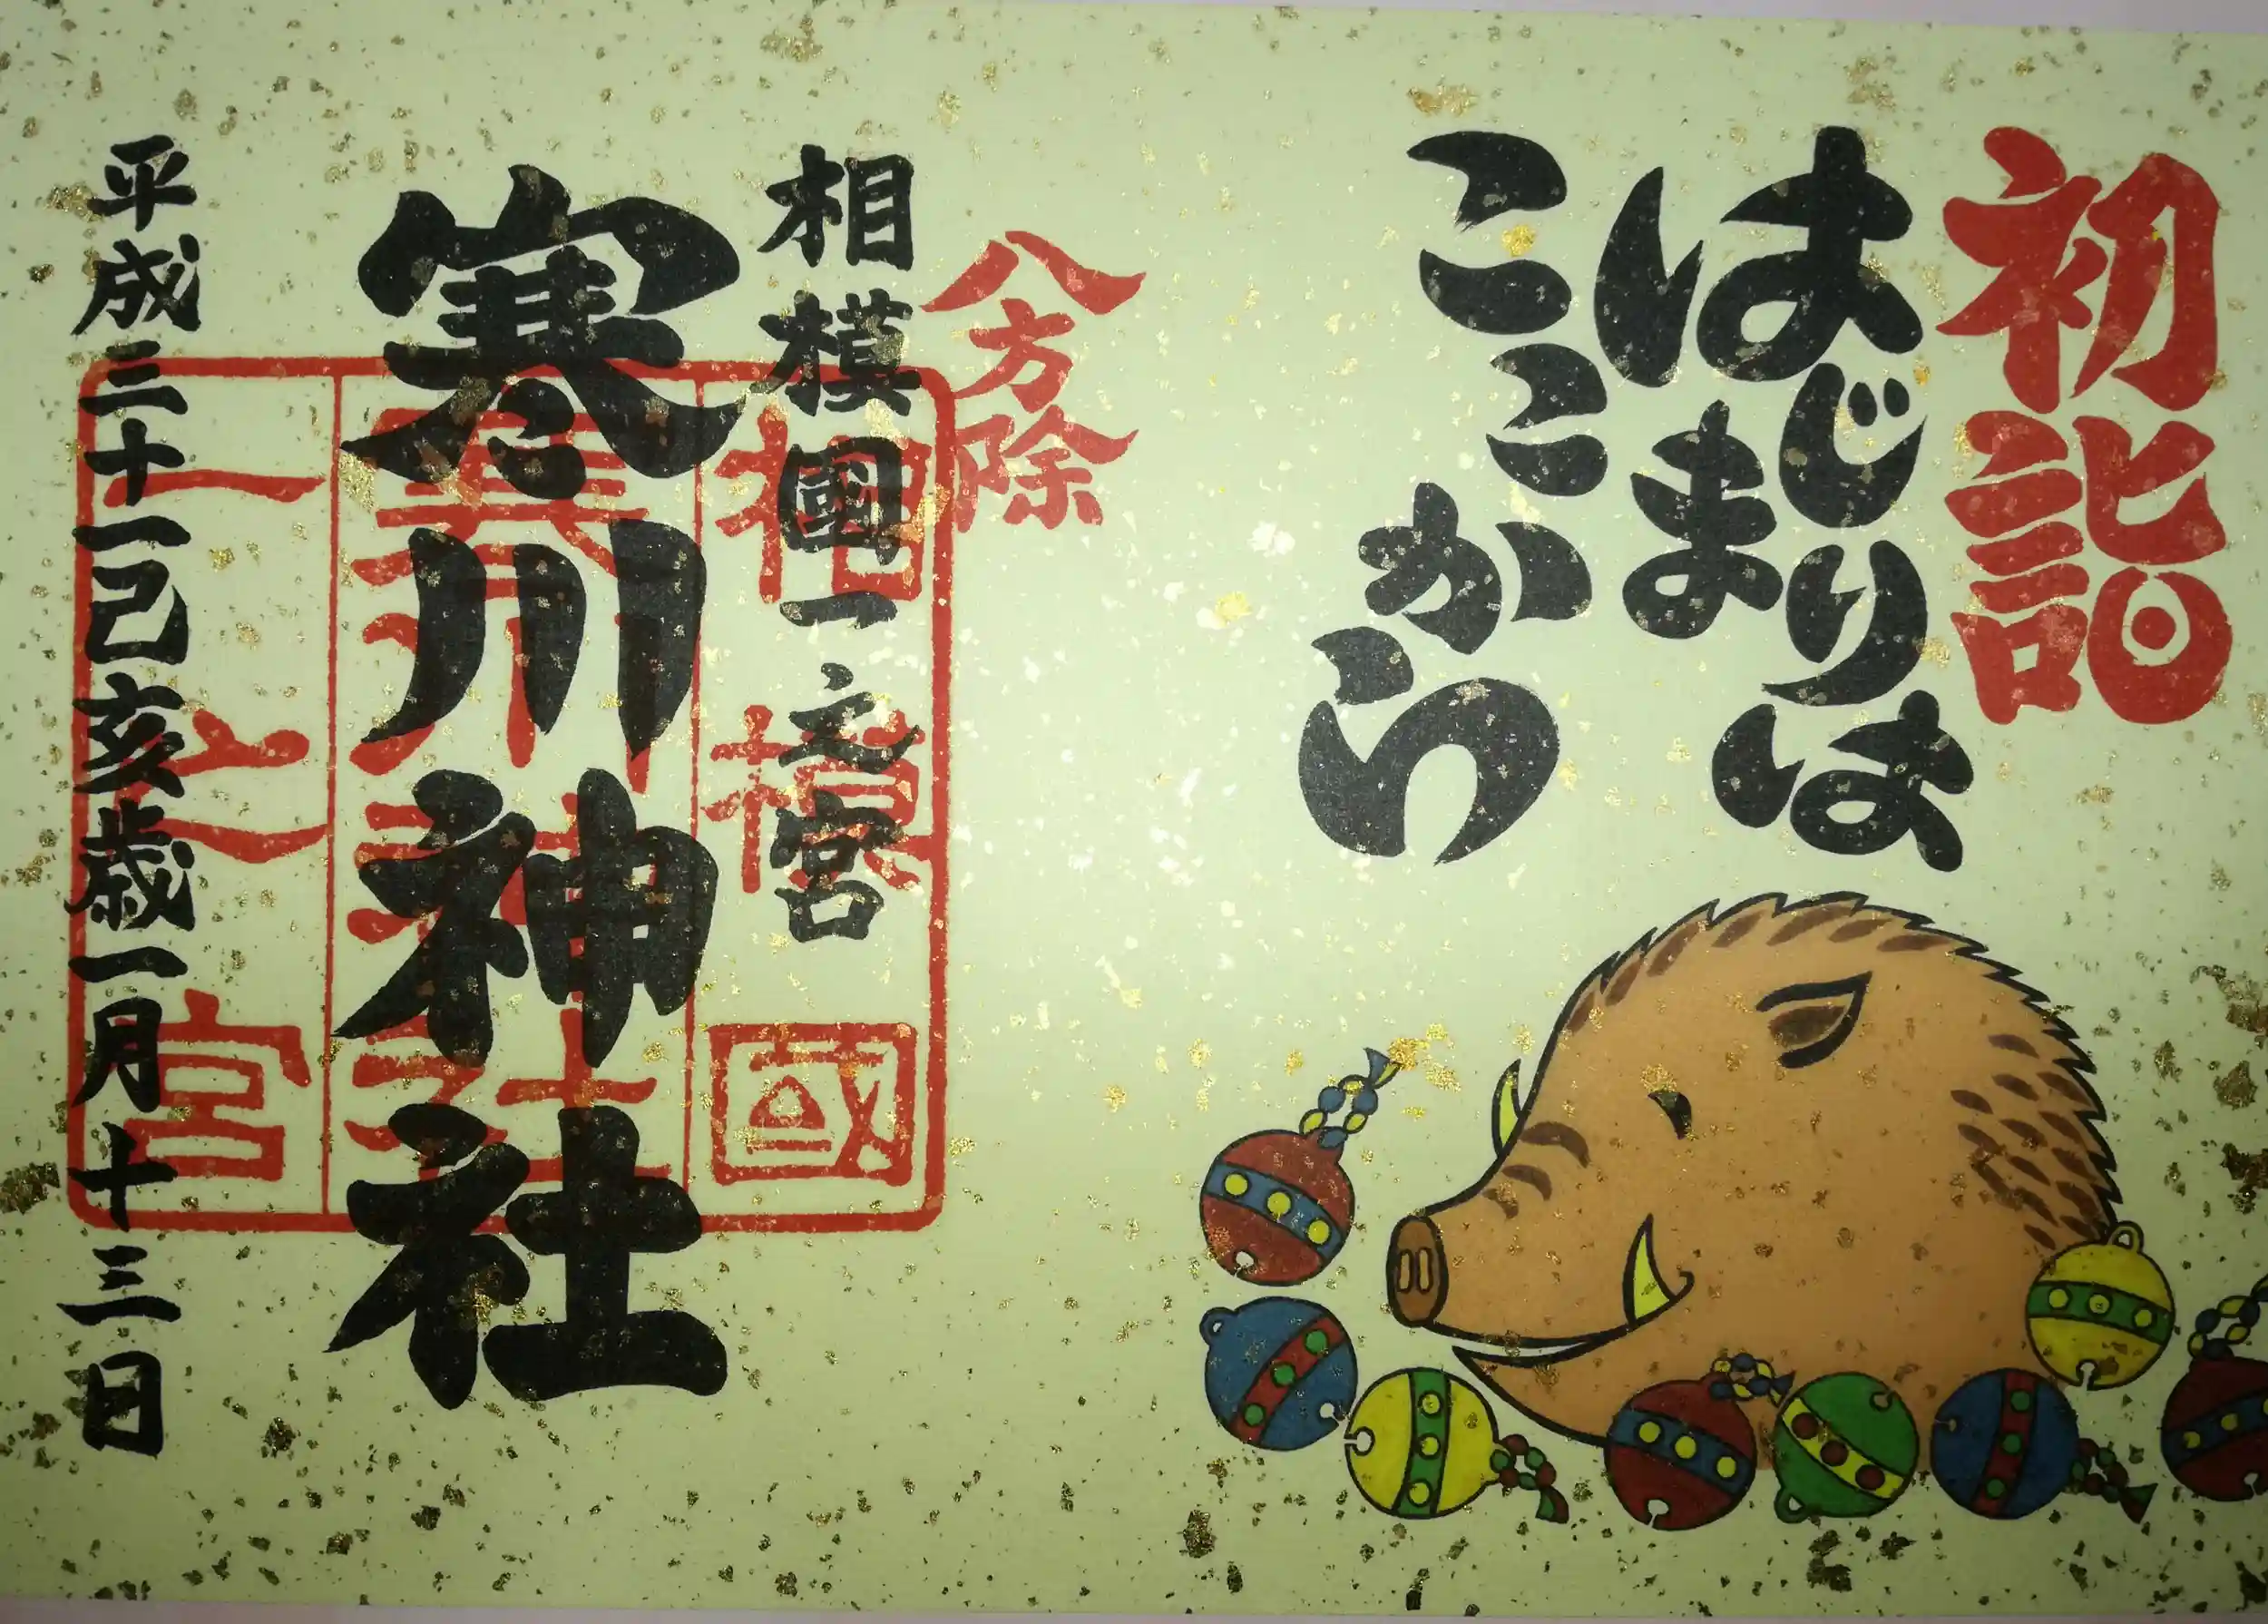 初詣
はじまりは
いま
ここから
八方除
相模國一之宮
寒川神社
平成三十一己亥歳一月十三日
相模國
寒川神社
一之宮